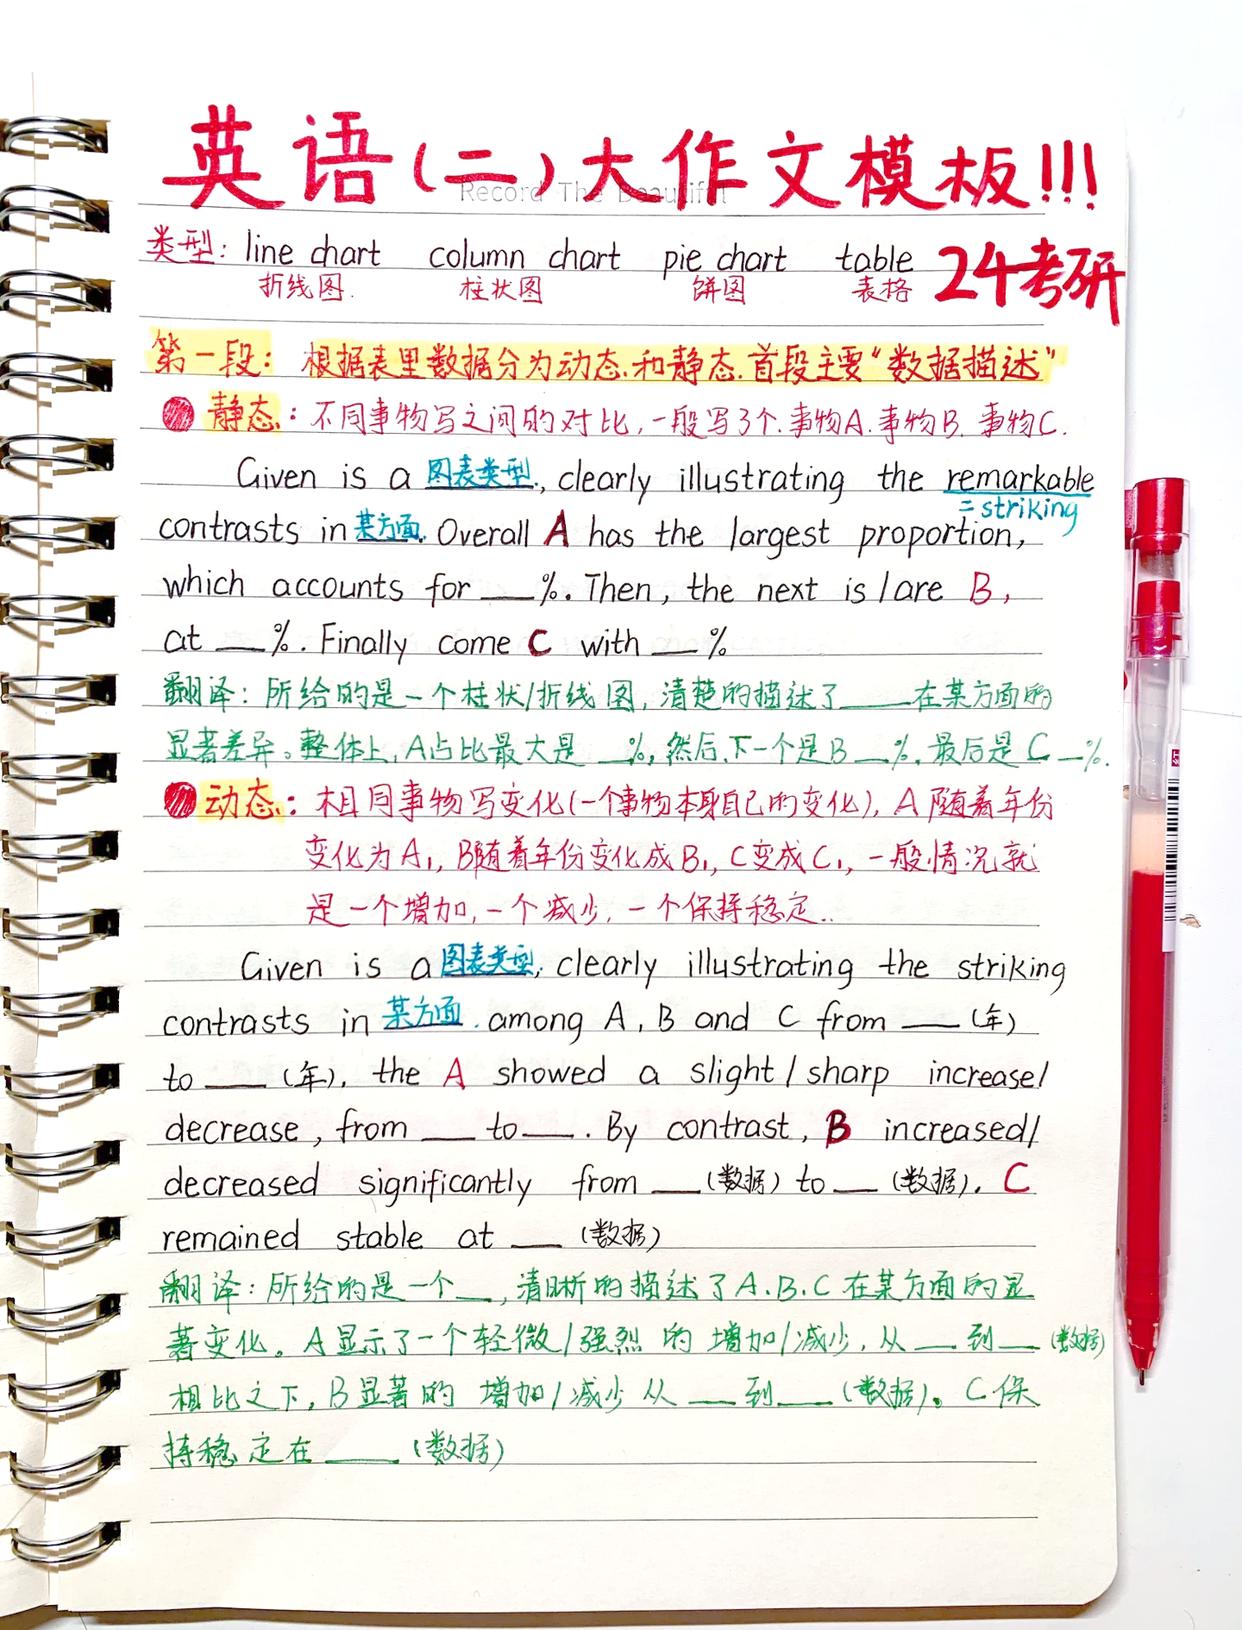 英语(二)大作文模板!!!
Record The Beautiful
类型: line chart column chart pie chart table 24考研
折线图. 柱状图 饼图 表格
第一段: 根据表里数据分为动态.和静态.首段主要“数据描述”
静态: 不同事物写之间的对比,一般写3个.事物A.事物B.事物C.
Given is a 图表类型, clearly illustrating the remarkable
=striking
contrasts in 某方面. Overall A has the largest proportion,
which accounts for __%. Then, the next is/are B,
at __%. Finally come C with __%
翻译: 所给的是一个柱状/折线图,清楚的描述了____在某方面的
显著差异。整体上,A占比最大是__%,然后,下一个是B__%,最后是C__%.
动态: 相同事物写变化(一个事物本身自己的变化),A随着年份
变化为A₁,B随着年份变化成B₁,C变成C₁,一般情况就
是一个增加,一个减少,一个保持稳定..
Given is a 图表类型, clearly illustrating the striking
contrasts in 某方面. among A, B and C from ___ (年)
to ___ (年), the A showed a slight/sharp increase/
decrease, from ___ to ___. By contrast, B increased/
decreased significantly from ___(数据) to ___ (数据). C
remained stable at ___ (数据)
翻译: 所给的是一个__,清晰的描述了A.B.C在某方面的显
著变化。A显示了一个轻微/强烈的增加/减少,从___到___(数据)
相比之下,B显著的增加/减少从___到___(数据)。C保
持稳定在____(数据)